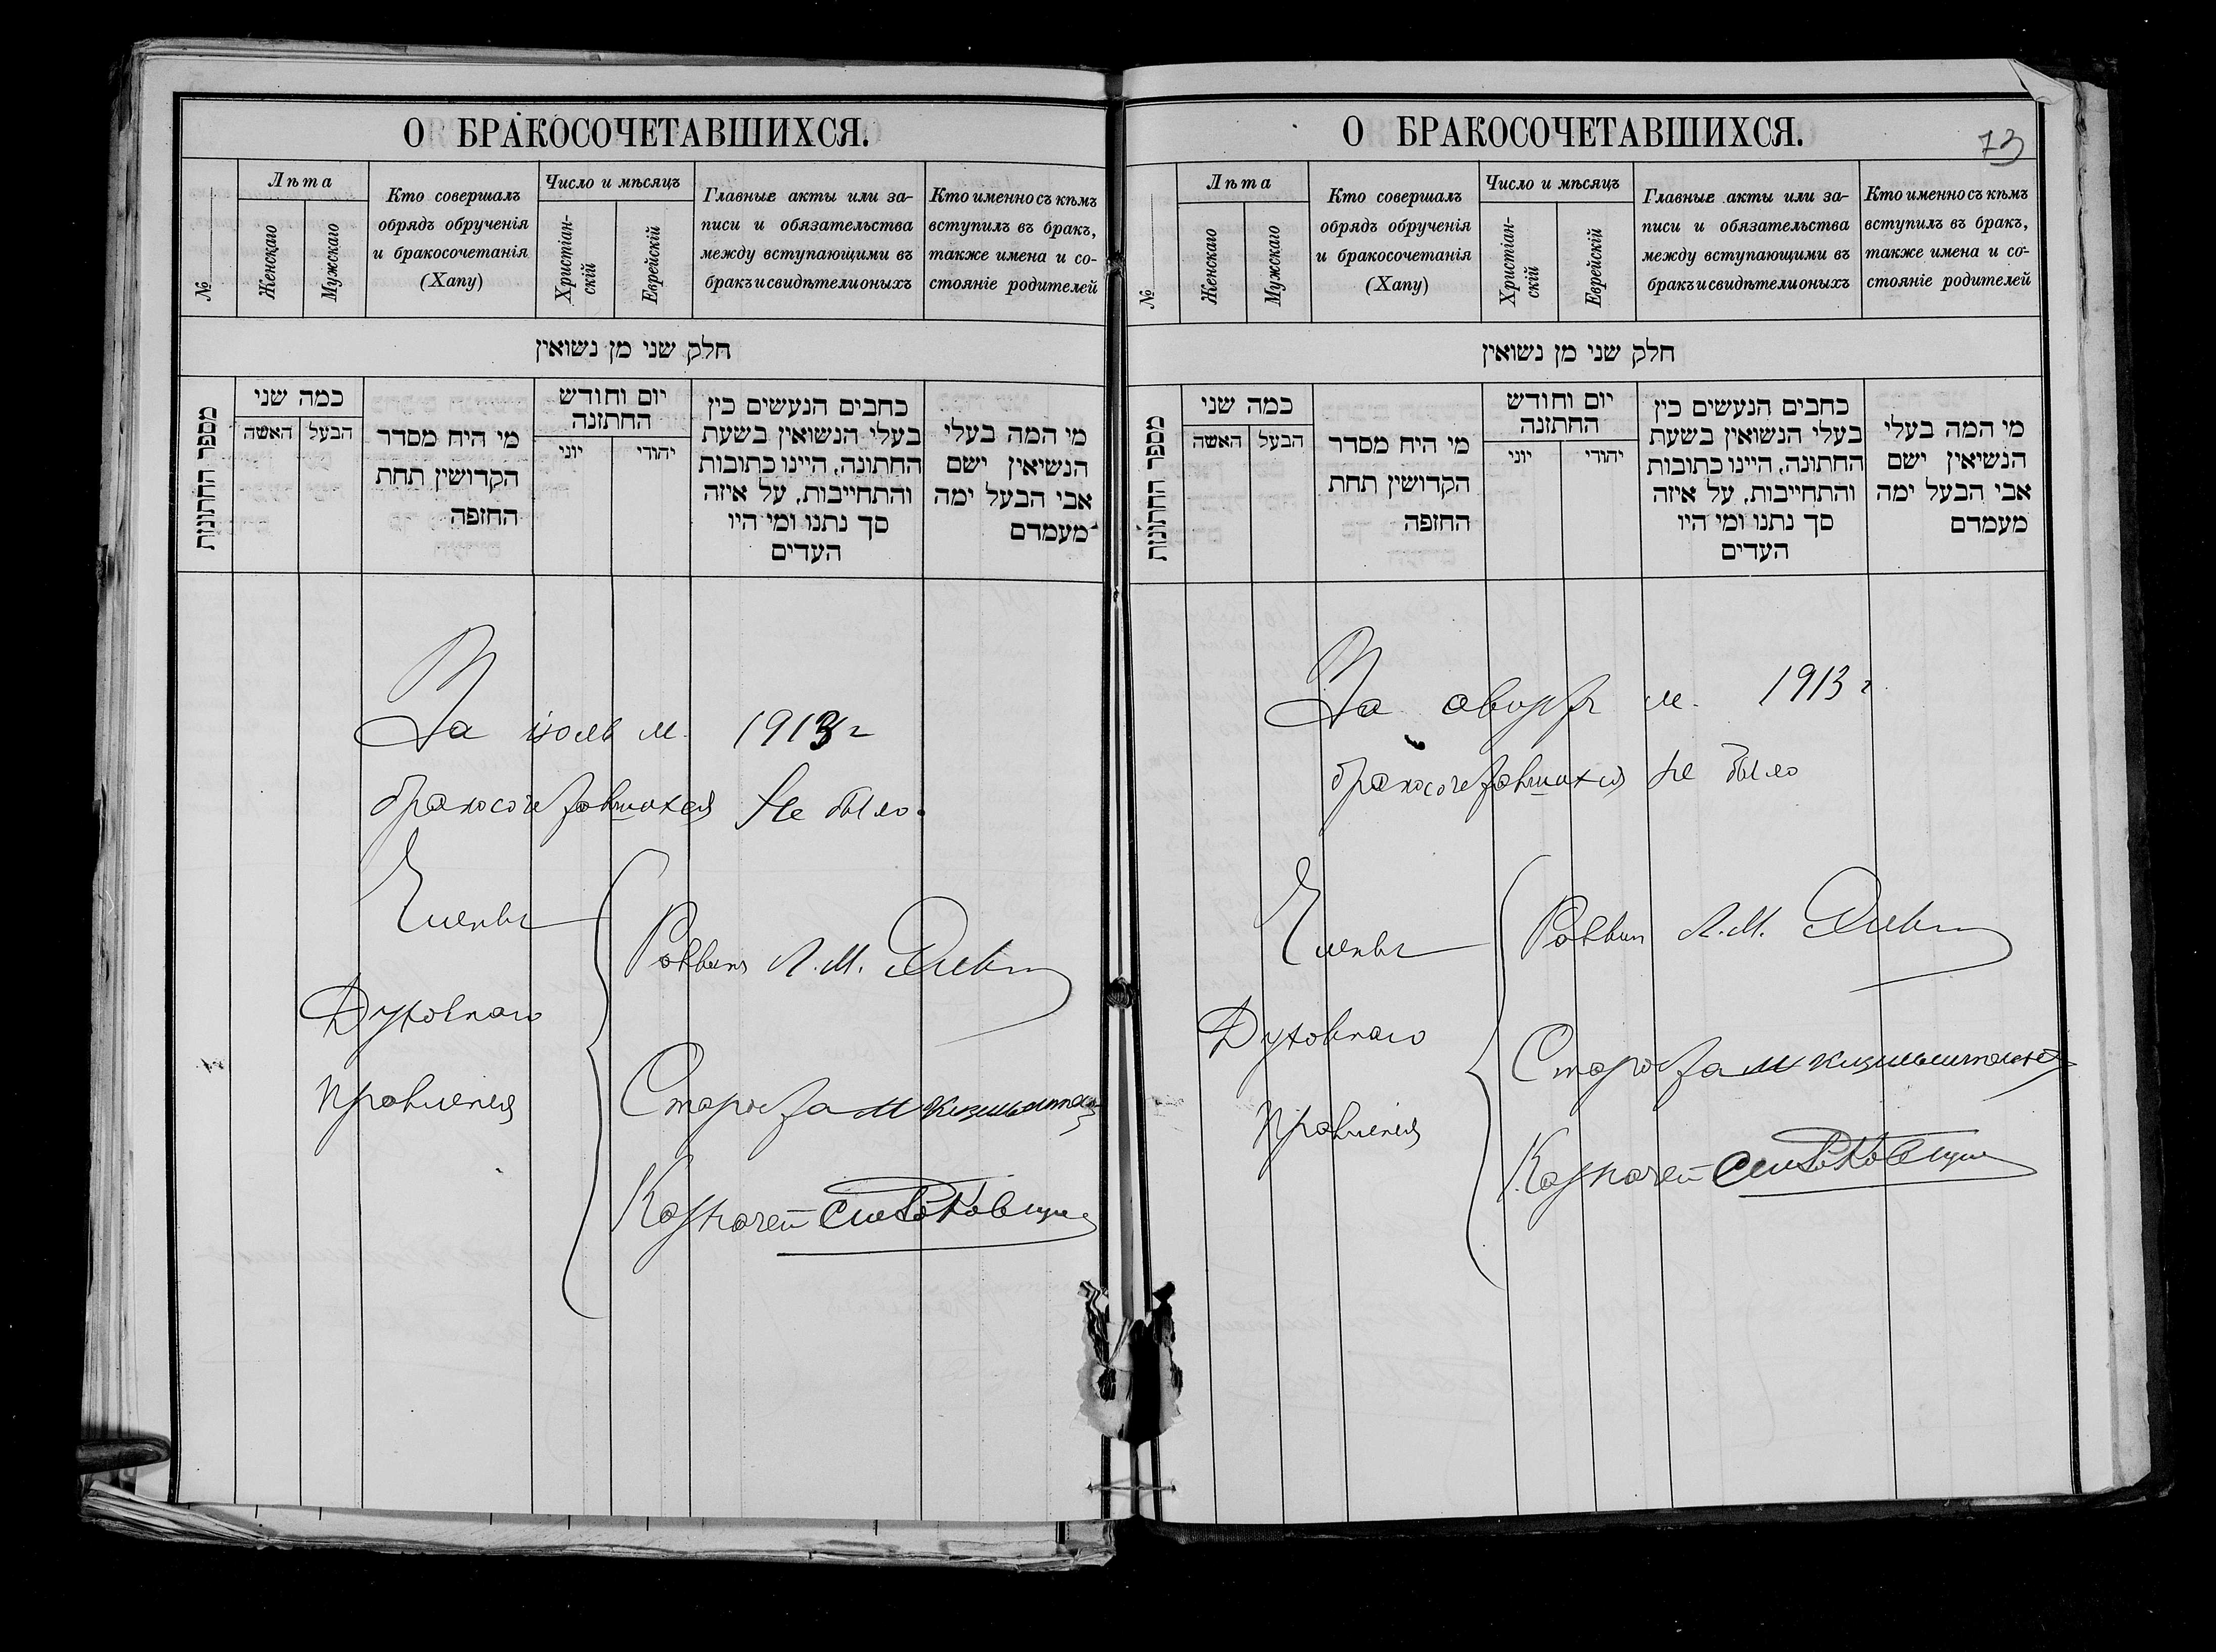 О БРАКОСОЧЕТАВШИХСЯ.
№
Лѣта
Женскаго
Мужскаго
Кто совершалъ
обрядъ обрученія
и бракосочетанія
(Хапу)
Число и мѣсяцъ
Христіан-
скій
Еврейскій
Главные акты или за-
писи и обязательства
между вступающими въ
бракъ и свидѣтели оныхъ
Кто именно съ кѣмъ
вступилъ въ бракъ,
также имена и со-
стояніе родителей
חלק שני מן נשואין
מספר החתונות
כמה שני
האשה
הבעל
מי היח מסדר
הקדושין תחת
החזפה
יום וחודש
החתזנה
יוני
יהודי
כחבים הנעשים כין
בעלי הנשואין בשעת
החתונה, היינו כתובות
והתחייבות, על איזה
סך נתנו ומי היו
העדים
מי המה בעלי
הנשיאין ישם
אבי הבעל ימה
מעמדם
За іюль м. 1913 г
бракосочетавшихся не было.
Члены
Духовнаго
Правленія
Раввинъ Л. М.
Староста М
Казначей
О БРАКОСОЧЕТАВШИХСЯ.
73
№
Лѣта
Женскаго
Мужскаго
Кто совершалъ
обрядъ обрученія
и бракосочетанія
(Хапу)
Число и мѣсяцъ
Христіан-
скій
Еврейскій
Главные акты или за-
писи и обязательства
между вступающими въ
бракъ и свидѣтели оныхъ
Кто именно съ кѣмъ
вступилъ въ бракъ,
также имена и со-
стояніе родителей
חלק שני מן נשואין
מספר החתונות
כמה שני
האשה
הבעל
מי היח מסדר
הקדושין תחת
החזפה
יום וחודש
החתזנה
יוני
יהודי
כחבים הנעשים כין
בעלי הנשואין בשעת
החתונה, היינו כתובות
והתחייבות, על איזה
סך נתנו ומי היו
העדים
מי המה בעלי
הנשיאין ישם
אבי הבעל ימה
מעמדם
За августъ м. 1913 г
бракосочетавшихся не было
Члены
Духовнаго
Правленія
Раввин Л. М.
Староста М
Казначей